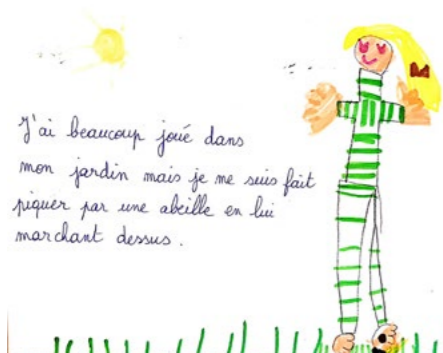 J'ai beaucoup joué dans
mon jardin mais je me suis fait
piquer par une abeille en lui
marchant dessus.